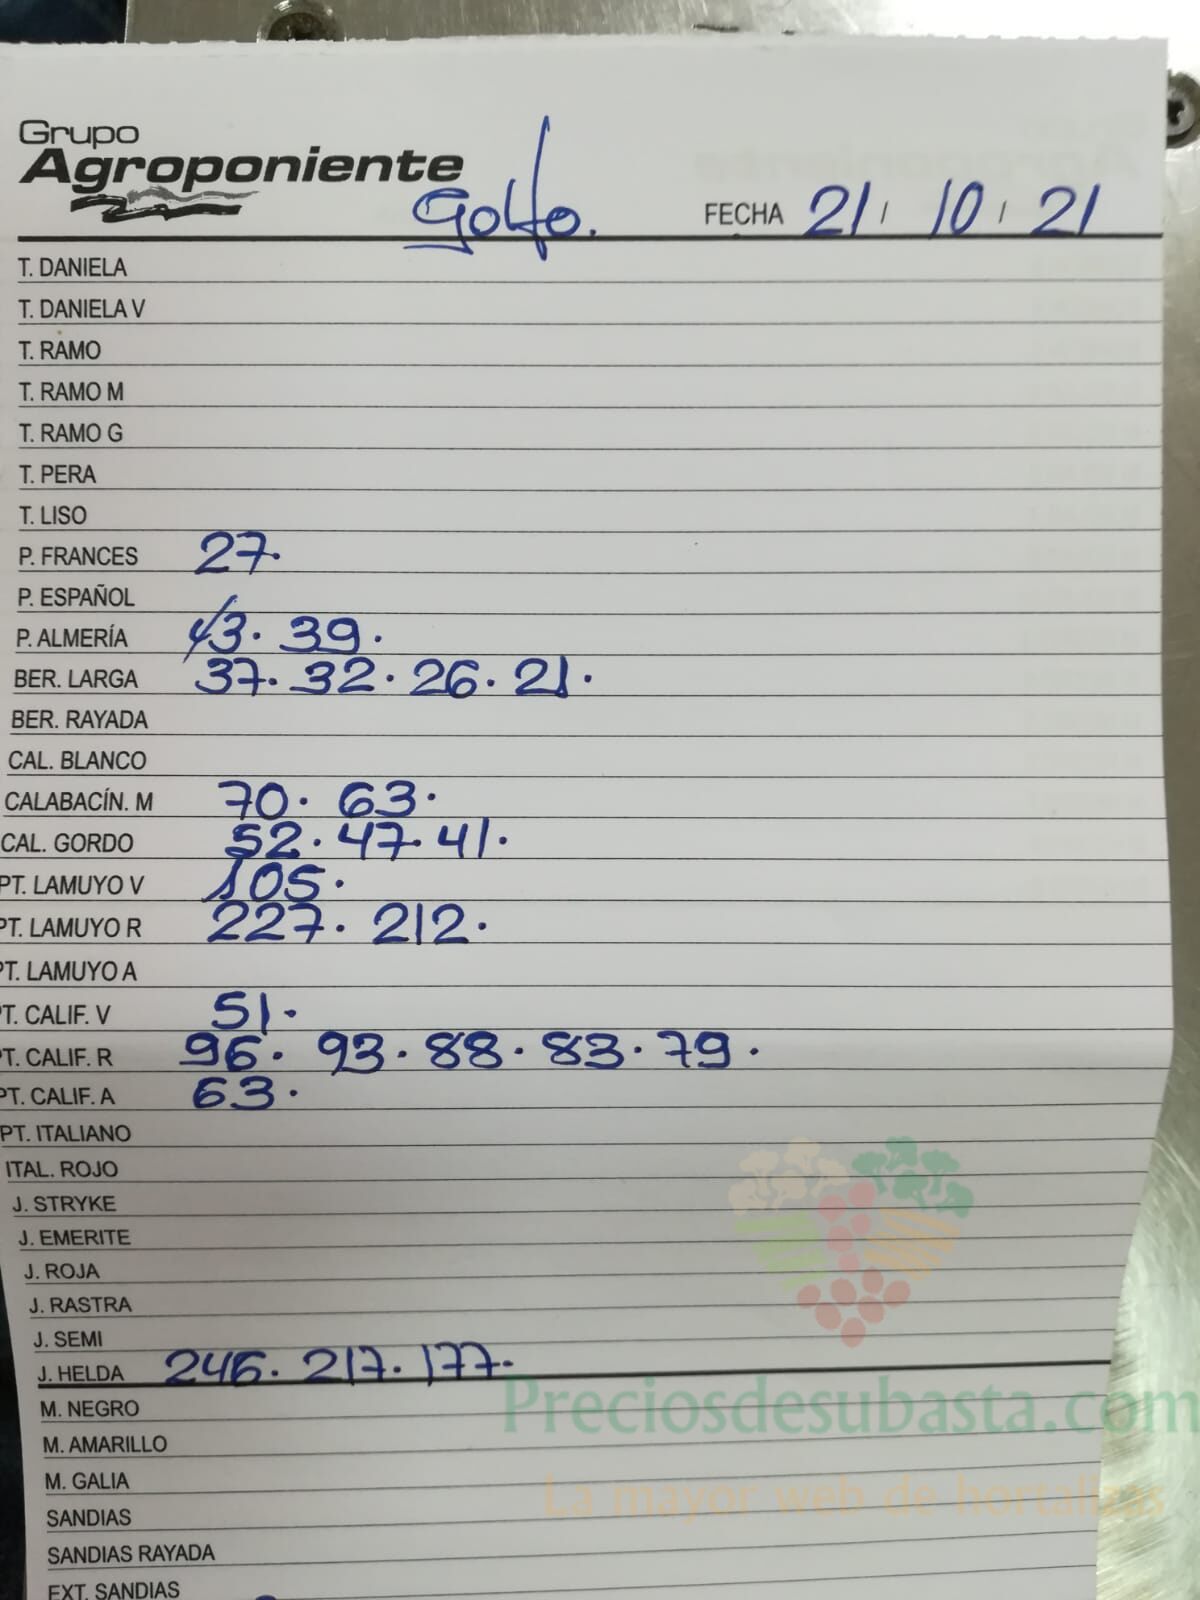 Grupo
Agroponiente
Golfo. FECHA 21 / 10 / 21
T. DANIELA
T. DANIELA V
T. RAMO
T. RAMO M
T. RAMO G
T. PERA
T. LISO
P. FRANCES 27.
P. ESPAÑOL
P. ALMERÍA 43. 39.
BER. LARGA 37. 32. 26. 21.
BER. RAYADA
CAL. BLANCO
CALABACÍN. M 70. 63.
CAL. GORDO 52. 47. 41.
PT. LAMUYO V 105.
PT. LAMUYO R 227. 212.
PT. LAMUYO A
PT. CALIF. V 51.
PT. CALIF. R 96. 93. 88. 83. 79.
PT. CALIF. A 63.
PT. ITALIANO
ITAL. ROJO
J. STRYKE
J. EMERITE
J. ROJA
J. RASTRA
J. SEMI
J. HELDA 246. 217. 177.
M. NEGRO
M. AMARILLO
M. GALIA
SANDIAS
SANDIAS RAYADA
EXT. SANDIAS
Preciosdesubasta.com
La mayor web de hortalizas